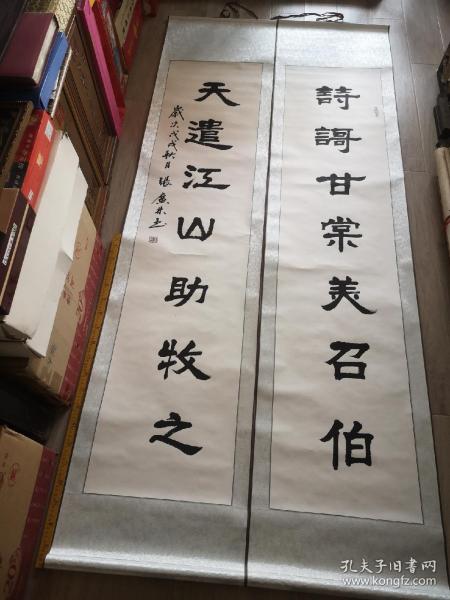 詩謌甘棠美召伯
天遣江山助牧之
歲次戊戌秋月張
孔夫子旧书网
www.kongfz.com